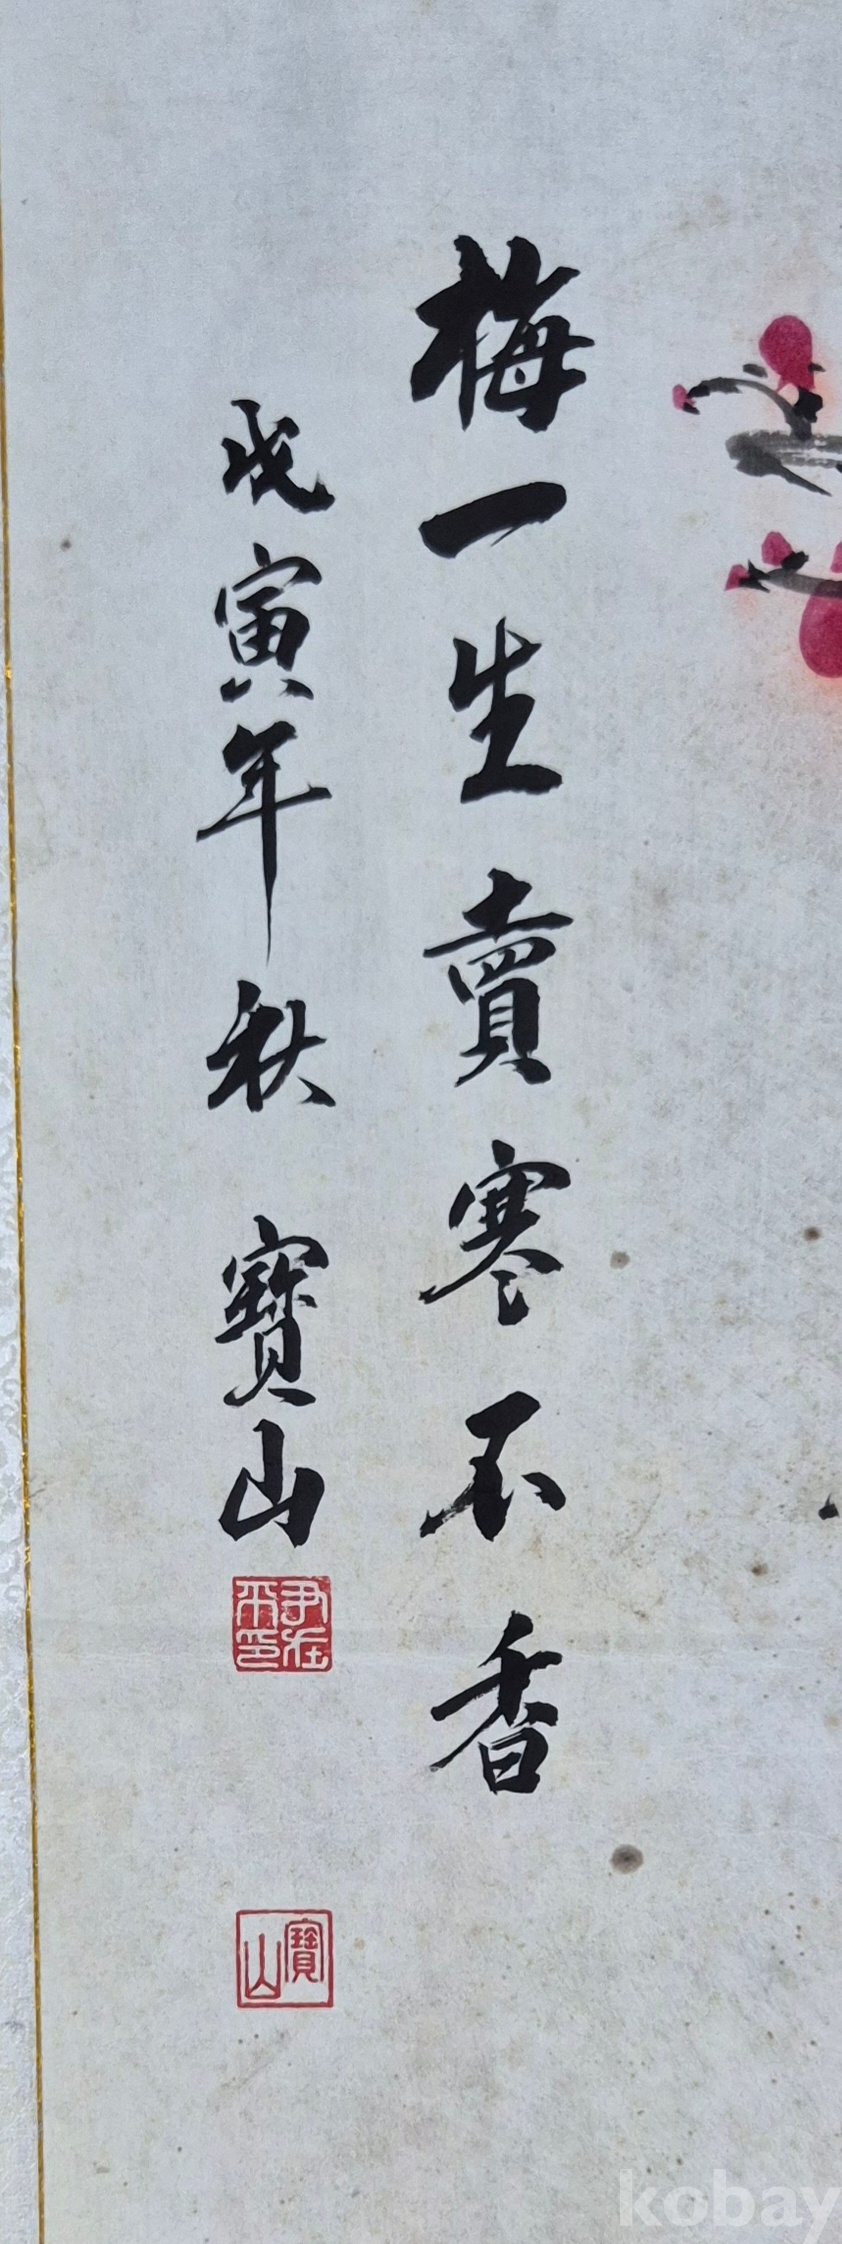 梅一生賣寒不香
戊寅年秋 寶山
尹在
平印
寶山
kobay